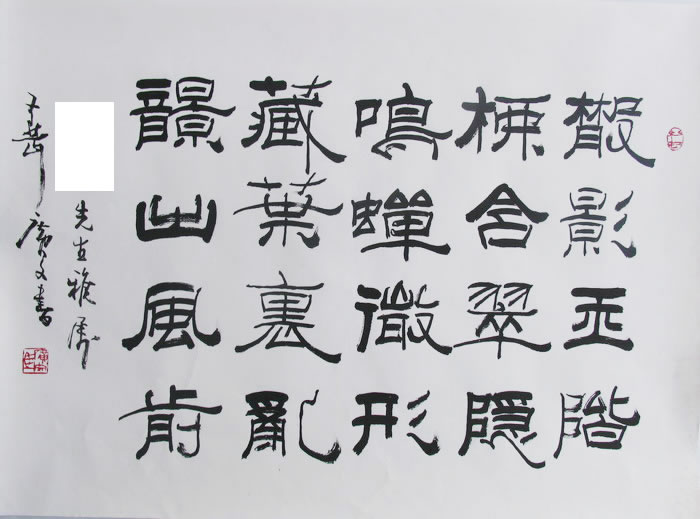 散影玉階
柳含翠隱
鳴蟬微形
藏葉裏亂
響出風前
先生雅属
廣文書